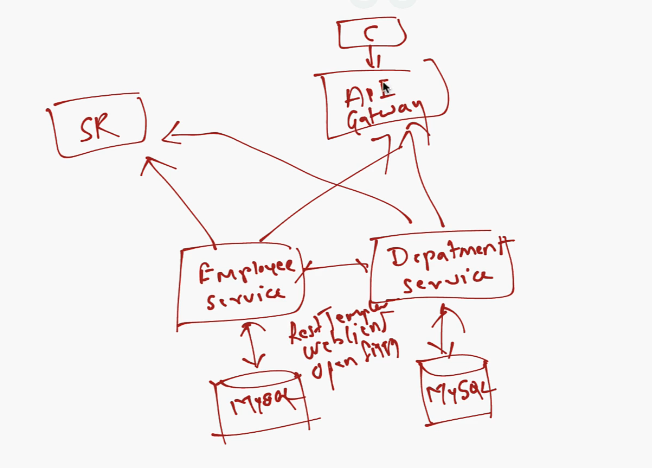 C
API
Gateway
SR
Employee
service
Depatment
service
RestTemplate
Weblient
open fign
MySQL
MySQL